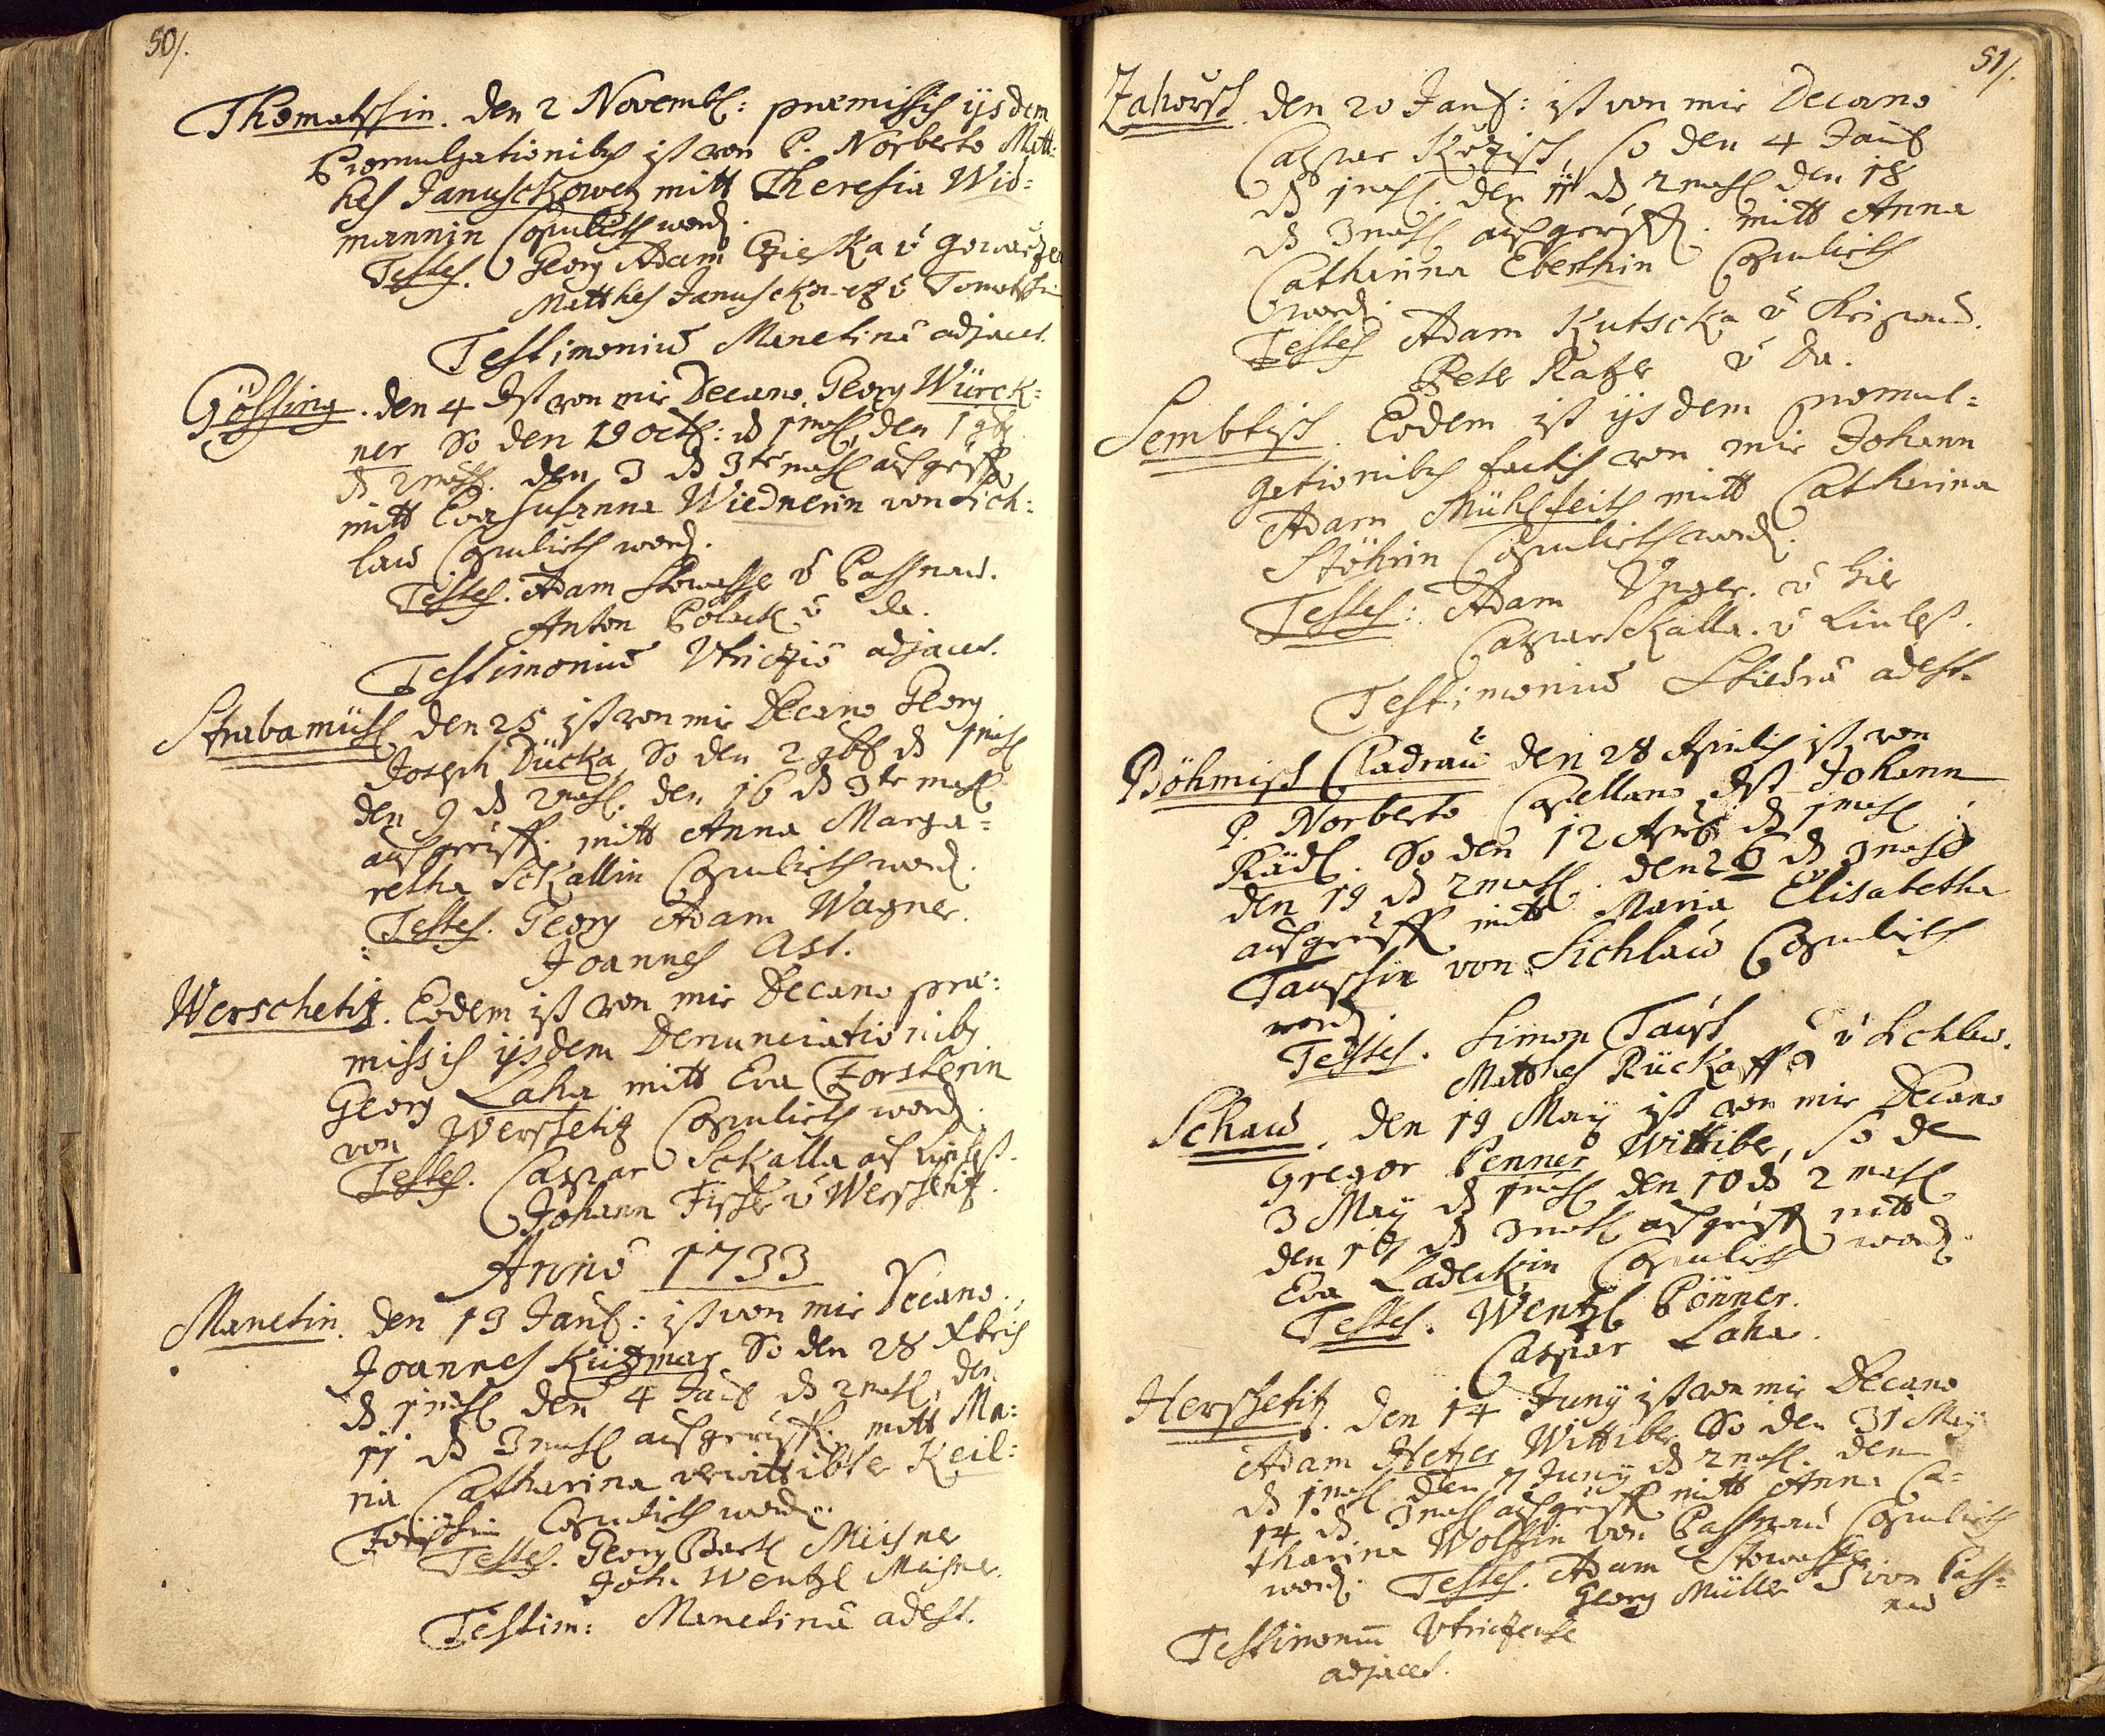 50/.
Thomatschin. den 2 Novembr: præmissis ijsdem
Promulgationibus ist von P. Norberto Matt:
hes Januschkowetz mitt Theresia Wid:
mannin Copulirth word.
Testes. Georg Adam Czieska v
Matthes v Tomatschin
Testimoniū Manetinē adjacet.
Gössing. den 4 Ist von mir Decano Georg Würck:
ner So den 19 octb: ds 1mahl, den 1 9br
ds 2mahl. den 3 ds 3te mahl aufgruffen
mitt Eva Susanna Wiednerin von Lich:
lau Copulirth word.
Testes. Adam Stowasser v Passnau.
Anton Polack v da.
Testimoniū adjacet.
Strabamühl den 25 ist von mir Decano Georg
Joseph Dücka, So den 2 9br ds 1mahl
den 9 ds 2mahl. den 16 ds 3te mahl
aufgruff. mitt Anna Marga=
retha Skallin Copulirth word.
Testes. Georg Adam Wagner.
Joannes Ast.
Werschetitz. Eodem ist von mir Decano præ:
missis ijsdem Denunciationibus
Georg Laha mitt Eva Forsterin
von Werschetitz Copulirth word.
Testes. Caspar Skalla auß
Johann Fischer v Werschetitz.
Anno 1733
Manetin. den 13 Janr: ist von mir Decano
Joannes Kützmar So den 28 Xbris
ds 1mahl den 4 Janr ds 2mahl, den
11 ds 3mahl aufgerüff. mitt Ma:
ria Catharina verwittibter Keil:
Copulirth word.
Testes. Georg Bartl Meisner
Joh. Wentzl Meisner.
Testim: Manetinē adest.
51/.
Zahorsch. den 20 Janr: ist von mir Decano
Caspar so den 4 Janr
ds 1mahl. den 11 ds 2mahl den 18
ds 3mahl aufgerüff. mitt Anna
Catharina Eberthin Copulirth
word.
Testes Adam Kutscka v
Peter Katzer v da.
Sembtisch. Eodem ist ijsdem promul=
gationibus factis von mir Johann
Adam Mühlfeith mitt Catharina
Stöhrin Copulirth word.
Testes: Adam Unger. v hier
Caspar Skalla. v
Testimoniū adest.
Böhmisch Cladrau den 28 Aprilis ist von
P. Norberto Capellano Johann
Rädl. So den 12 Apr ds 1mahl
den 19 ds 2mahl. den 26 ds 3mahl
aufgerüff mitt Maria Elisabetha
Tauschin von Lichlau Copulirth
word.
Testes. Simon Tausch
Matthes Rückauff v Lichlau.
Schau. den 19 May ist von mir Decano
Gregor Penner Wittiber, so de
3 May ds 1mahl den 10 ds 2 mahl
den 17 ds 3mahl aufgrüff mitt
Eva Ladeckin Copulirth word.
Testes. Wentzl Pönner.
Caspar Laha.
Herschetitz. den 14 Juny ist von mir Decano
Adam Hetzer Wittiber So den 31 May
ds 1mahl den 7 Juny ds 2mahl. den
14 ds 3mahl aufgrüff mitt Anna Ca=
tharina Wolffin von Passnau Copulirth
word. Testes. Adam Stowasser
Georg Müller von Pass=
nau
Testimonium Utriczense
adjacet.